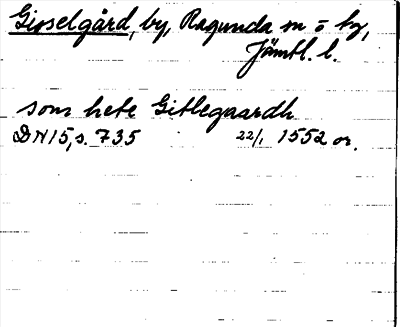 Gisselgård, by, Ragunda sn o. tg,
Jämtl. l.
som hete Gitzlegaardh
DN 15, s. 735 22/1 1552 or.